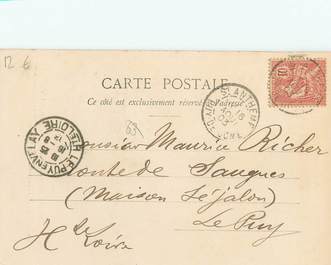 12 6
CARTE POSTALE
Ce côté est exclusivement réservé à l'adresse
63
Monsieur Maurice Richer
Route de Saugues
(Maison Séjalon)
Le Puy
Hte Loire
LE PUY-EN-VELAY
HTE LOIRE
ST ANTHEME
PUY-DE-DOME
10